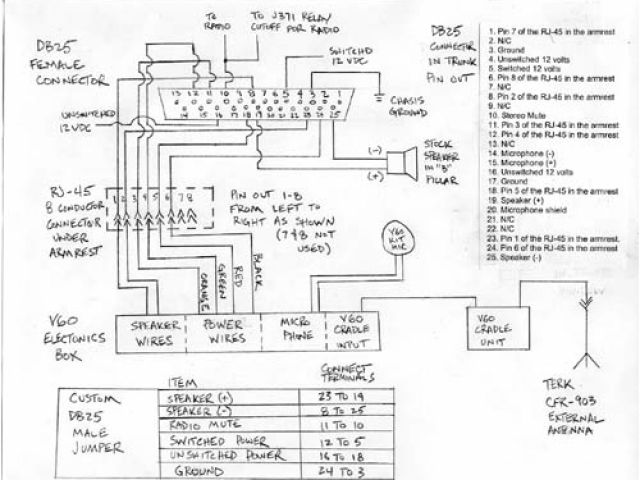 TO RADIO
TO J371 RELAY
CUTOFF FOR RADIO
DB25
FEMALE
CONNECTOR
SWITCHED
12 VDC
DB25
CONNECTOR
IN TRUNK
PIN OUT
1. Pin 7 of the RJ-45 in the armrest
2. N/C
3. Ground
4. Unswitched 12 volts
5. Switched 12 volts
6. Pin 8 of the RJ-45 in the armrest
7. N/C
8. Pin 2 of the RJ-45 in the armrest
9. N/C
10. Stereo Mute
11. Pin 3 of the RJ-45 in the armrest
12. Pin 4 of the RJ-45 in the armrest
13. N/C
14. Microphone (-)
15. Microphone (+)
16. Unswitched 12 volts
17. Ground
18. Pin 5 of the RJ-45 in the armrest
19. Speaker (+)
20. Microphone shield
21. N/C
22. N/C
23. Pin 1 of the RJ-45 in the armrest.
24. Pin 6 of the RJ-45 in the armrest
25. Speaker (-)
13 12 11 10 9 8 7 6 5 4 3 2 1
14 15 16 17 18 19 20 21 22 23 24 25
UNSWITCHED
12 VDC
CHASIS
GROUND
(-)
(+)
STOCK
SPEAKER
IN "B"
PILLAR
RJ-45
8 CONDUCTOR
CONNECTOR
UNDER
ARMREST
1 2 3 4 5 6 7 8
PIN OUT 1-8
FROM LEFT TO
RIGHT AS SHOWN
(7 & 8 NOT
USED)
V60
KIT
MIC
ORANGE
GREEN
RED
BLACK
V60
ELECTONICS
BOX
SPEAKER
WIRES
POWER
WIRES
MICRO
PHONE
V60
CRADLE
INPUT
V60
CRADLE
UNIT
TERK
CFR-903
EXTERNAL
ANTENNA
CUSTOM
DB25
MALE
JUMPER
ITEM
CONNECT
TERMINALS
SPEAKER (+) 23 TO 19
SPEAKER (-) 8 TO 25
RADIO MUTE 11 TO 10
SWITCHED POWER 12 TO 5
UNSWITCHED POWER 16 TO 18
GROUND 24 TO 3